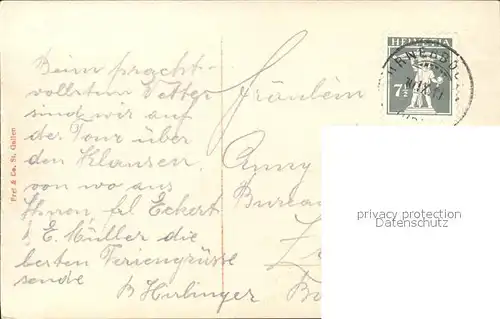 Beim pracht-
vollsten Wetter
sind wir auf
der Tour über
den Klausen
von wo aus
Ihnen, frl Eckert
& E. Müller die
besten Feriengrüsse
sende
B Hirlinger
Fräulein
Anny
Bureau
HELVETIA
7½
Frei & Co. St. Gallen
privacy protection
Datenschutz